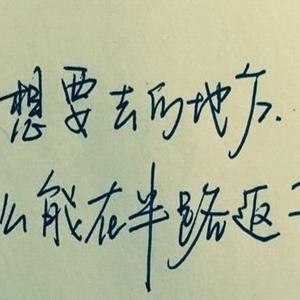 想要去的地方.
么能在半路返